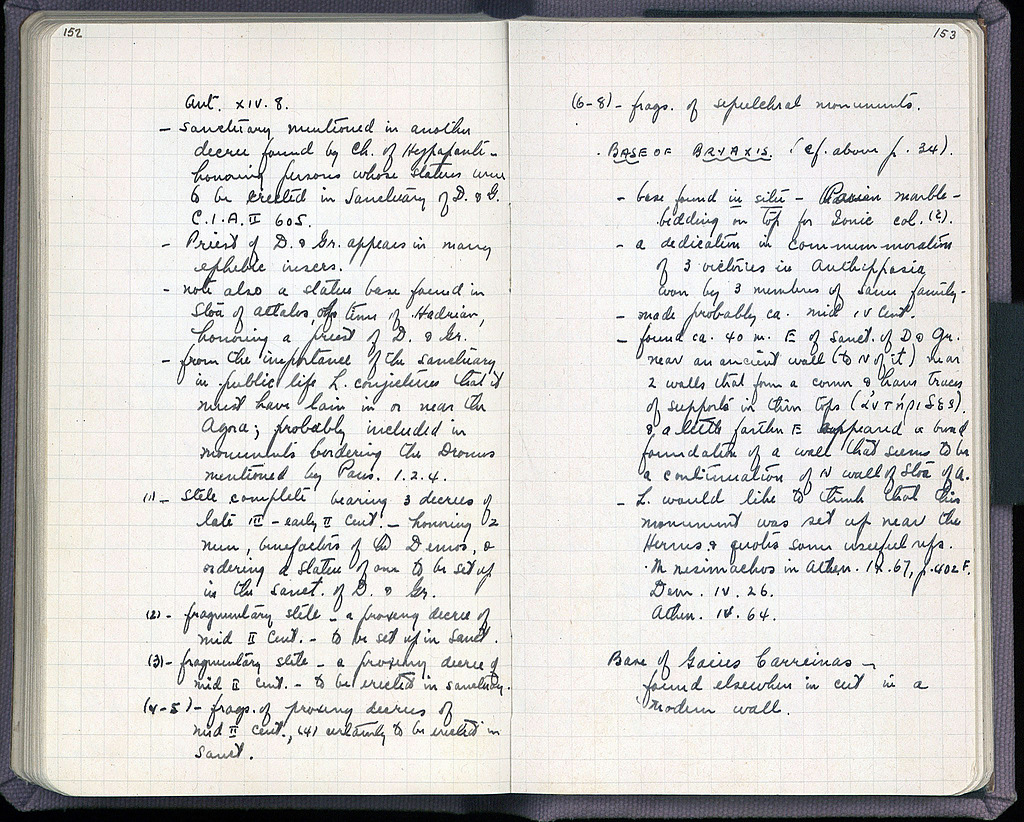 152
Ant. XIV. 8.
- Sanctuary mentioned in another
decree found by Ch. of Hypapanti -
honoring persons whose statues were
to be erected in Sanctuary of D. & G.
C.I.A. II 605.
- Priest of D. & Gr. appears in many
ephebic inscrs.
- note also a statue base found in
Stoa of Attalos, of time of Hadrian,
honoring a priest of D. & Gr.
- from the importance of the sanctuary
in public life L. conjectures that it
must have lain in or near the
Agora; probably included in
monuments bordering the Dromos
mentioned by Paus. 1.2.4.
(1) - Stele complete bearing 3 decrees of
late III - early II cent. - honoring 2
men, benefactors of the Demos, &
ordering a statue of one to be set up
in the Sanct. of D. & Gr.
(2) - fragmentary stele - a proxeny decree of
mid II cent. - to be set up in Sanct.
(3) - fragmentary stele - a proxeny decree of
mid II cent. - to be erected in sanctuary.
(4-5) - frags. of proxeny decrees of
mid II cent., (4) certainly to be erected in
Sanct.
153
(6-8) - frags. of sepulchral monuments.
BASE OF BRYAXIS. (cf. above p. 34).
- base found in situ - Parian marble -
bedding on top for Ionic col. (?).
- a dedication in commemmoration
of 3 victories in Anthippasia
won by 3 members of same family -
- made probably ca. mid IV cent.
- found ca. 40 m. E of Sanct. of D & Gr.
near an ancient wall (to N of it) near
2 walls that form a corner & have traces
of supports in their tops (ἀντήριδες).
& a little farther E appeared a broad
foundation of a wall that seems to be
a continuation of N wall of Stoa of A.
- L. would like to think that this
monument was set up near the
Herms & quotes some useful refs.
Mnesimachos in Athen. IX. 67, p. 402 F.
Dem. IV. 26.
Athen. IV. 64.
Base of Gaius Carreinas -
found elsewhere in cut in a
modern wall.